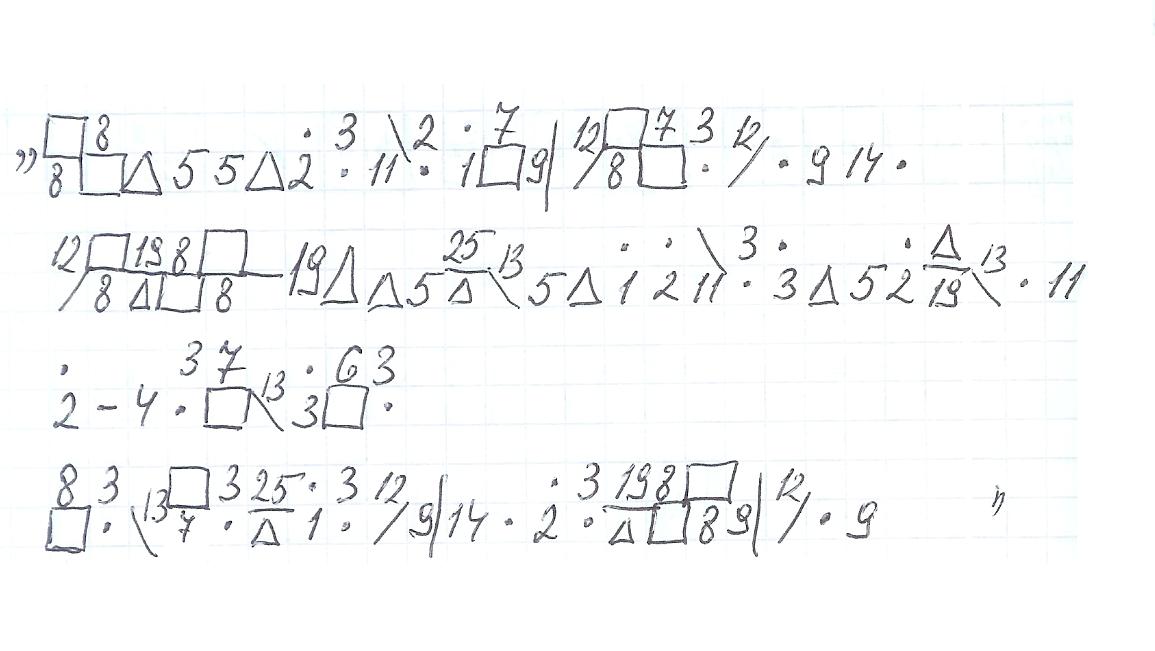 „□/8 8/□ △ 5 5 △ 2̇ 3/· 11 \ 2/· i 7/□ 9| 12/ □/8 7/□ 3/· 12/ · 9 14 ·
12/ □/8 19/△ 8/□ □/8 — 19 △ △ 5 25/△ \13 5 △ i 2̇ 11 \ 3/· 3̇ △ 5 2̇ △/19 \13 · 11
2̇ - 4 3/· 7/□ \13 3̇ 6/□ 3/·
8/□ 3/· \13 □/7 3/· 25/△ i 3/· 12/ 9| 14 · 2̇ 3/· 19/△ 8/□ □/8 9| 12/ · 9 "